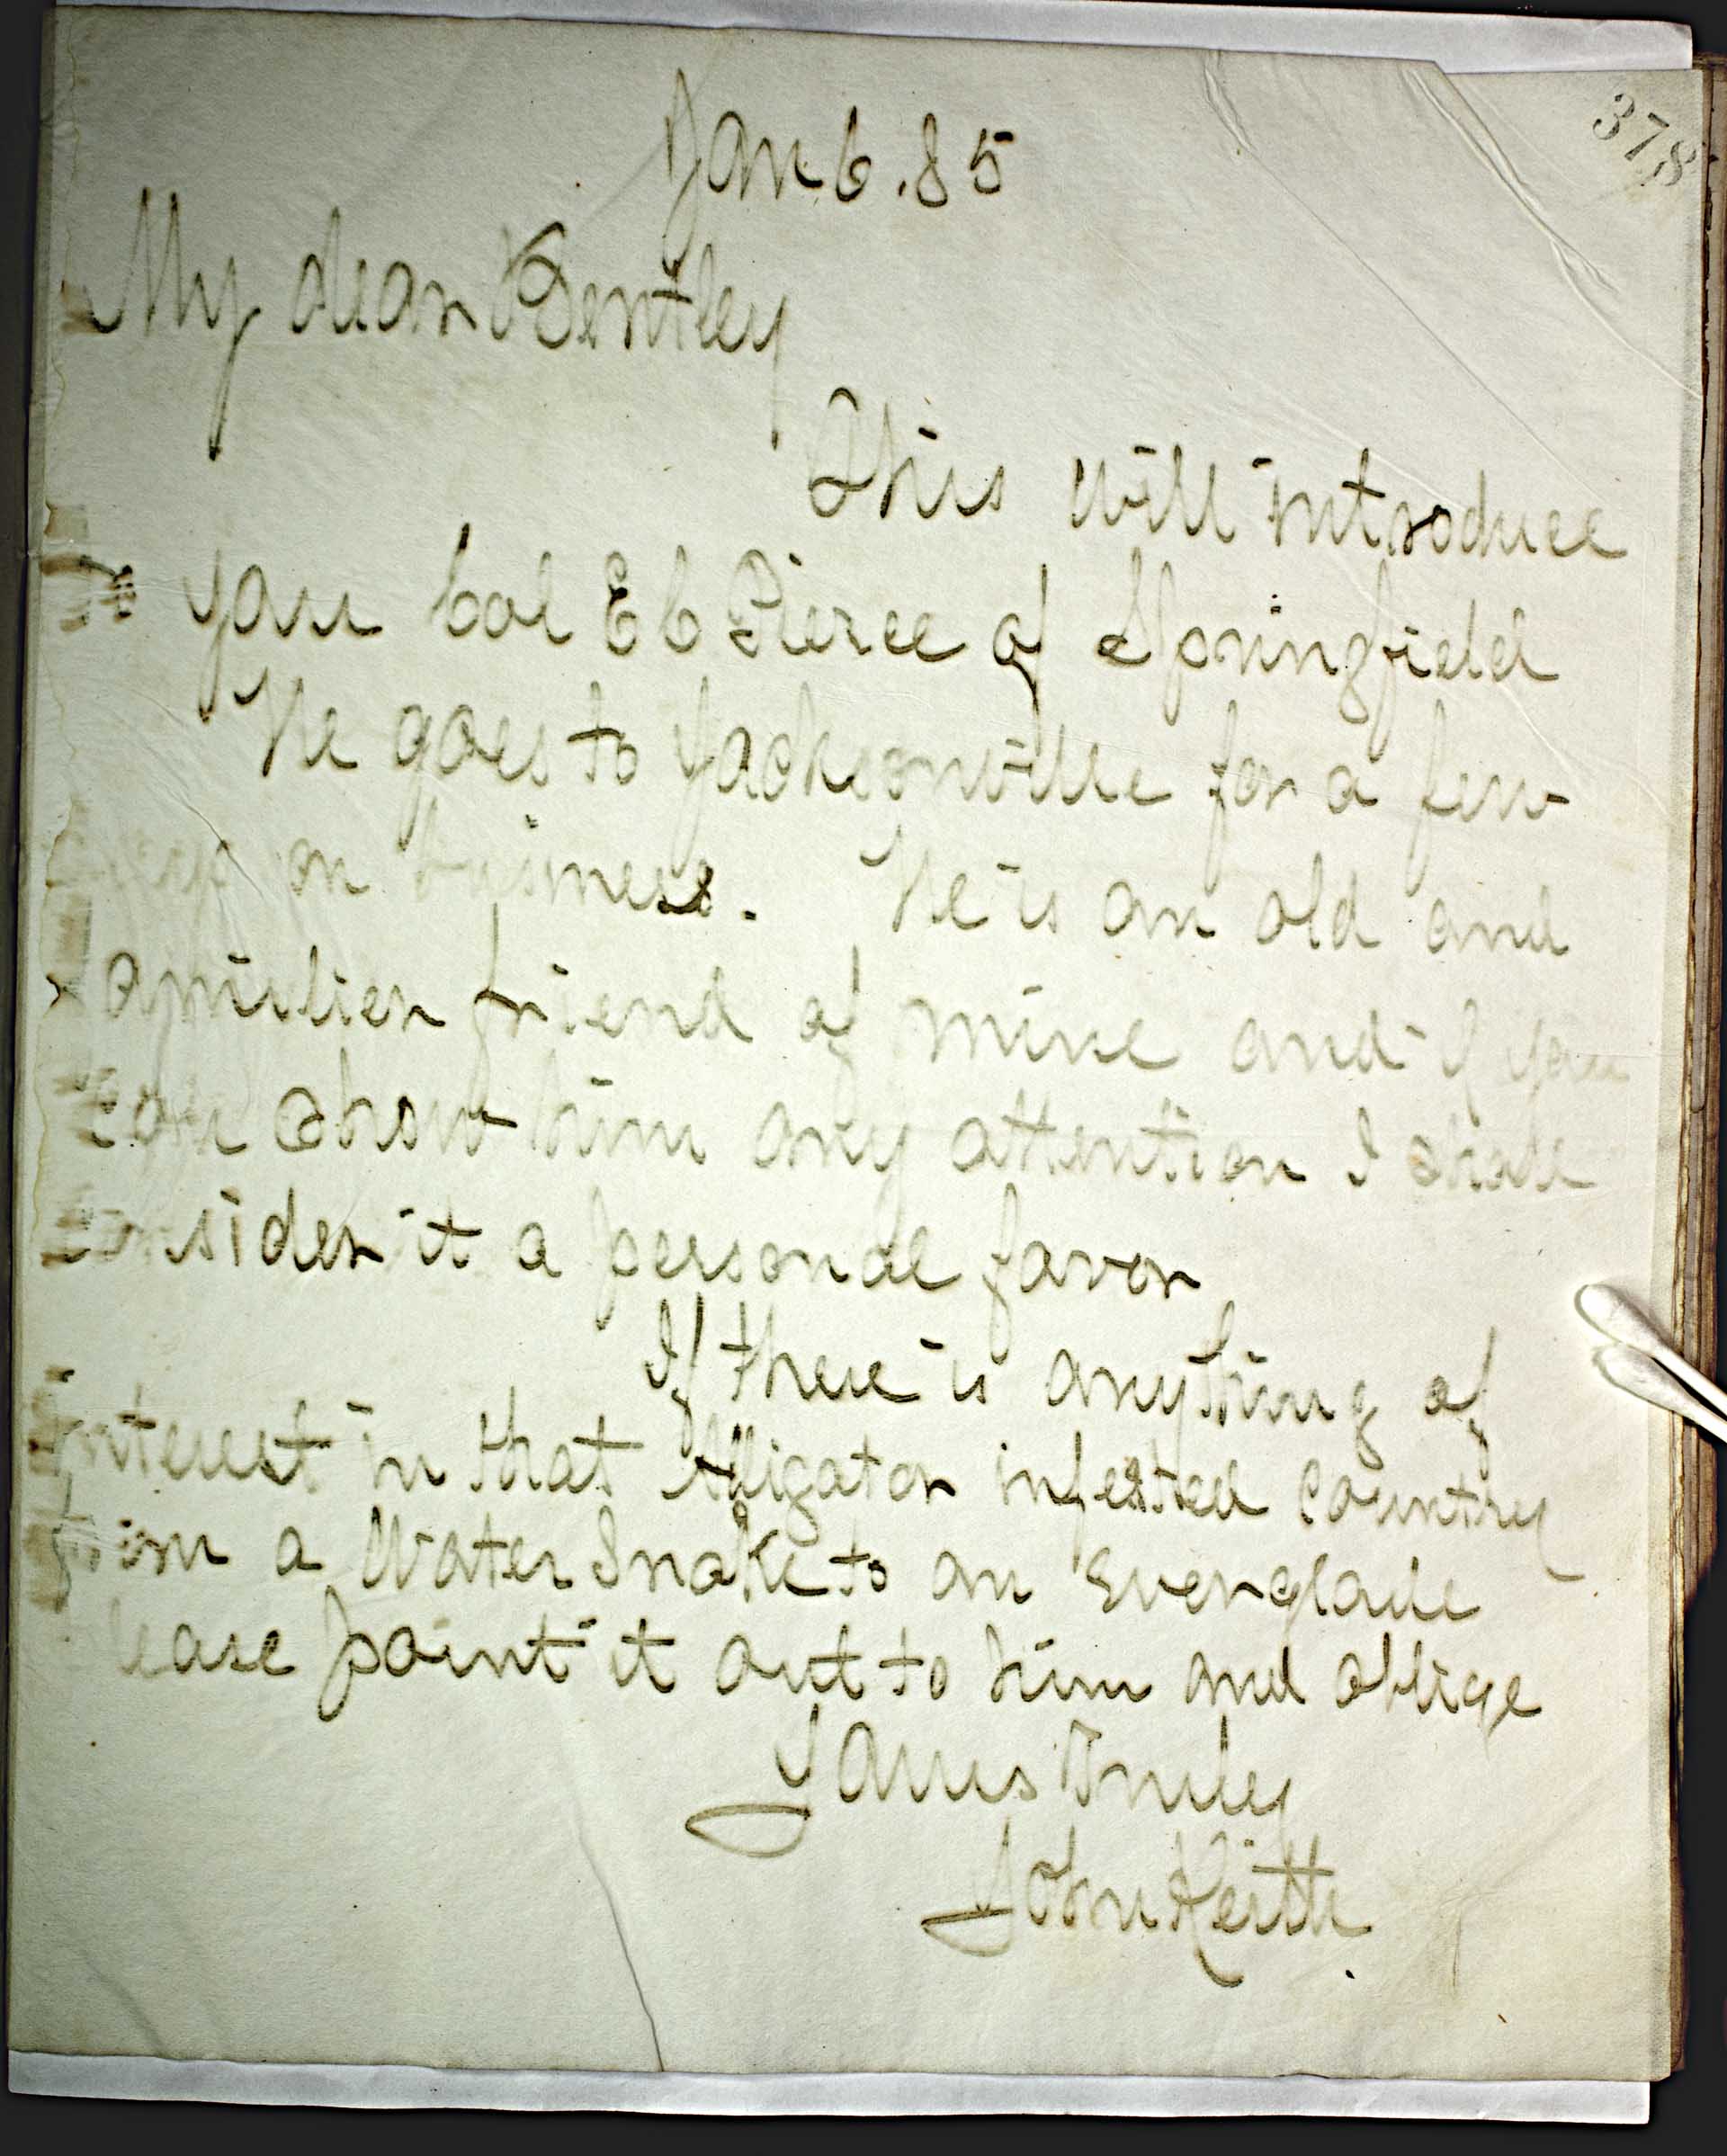 378
Jan 6. 85
My dear Bentley
This will introduce
you Col E C Pierce of Springfield
He goes to Jacksonville for a few
on business. He is an old and
friend of mine and if you
can show him any attention I shall
consider it a personal favor
If there is anything of
interest in that Alligator infested Country
from a Water Snake to an Everglade
lease point it out to him and oblige
Yours Truly
John Keith